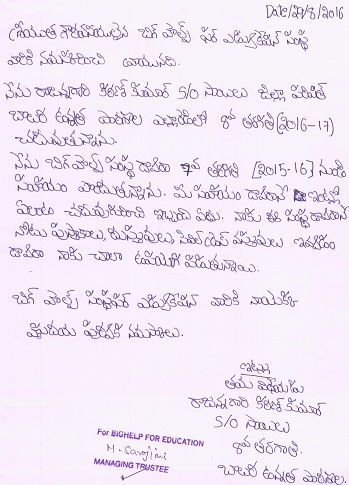 Date/29/8/2016
శ్రీయుత గౌరవనీయులైన బిగ్ హెల్ప్ ఫర్ ఎడ్యుకేషన్ సంస్థ
వారికి నమస్కరించి వ్రాయునది.
నేను రాజన్నగారి కిరణ్ కుమార్ S/O సాయిలు జిల్లా పరిషత్
బాలుర ఉన్నత పాఠశాల 8వ తరగతి (2016-17)
చదువుతున్నాను.
నేను బిగ్ హెల్ప్ సంస్థ ద్వారా 7వ తరగతి [2015-16] నుండి
సహాయం పొందుతున్నాను. మీ సహాయం ద్వారానే
చదువుకోవడానికి ఇబ్బంది లేదు. నాకు ఈ సంస్థ ద్వారానే
నోటు పుస్తకాలు, దుస్తులు, ఇవ్వడం
ద్వారా నాకు చాలా ఉపయోగపడుతున్నాయి.
బిగ్ హెల్ప్ సంస్థ ఫర్ ఎడ్యుకేషన్ వారికి నా యొక్క
హృదయ పూర్వక నమస్కారాలు.
ఇట్లు
తమ విధేయుడు
రాజన్నగారి కిరణ్ కుమార్
S/O సాయిలు
8వ తరగతి.
బాలుర ఉన్నత పాఠశాల.
For BIGHELP FOR EDUCATION
M. Sarojini
MANAGING TRUSTEE